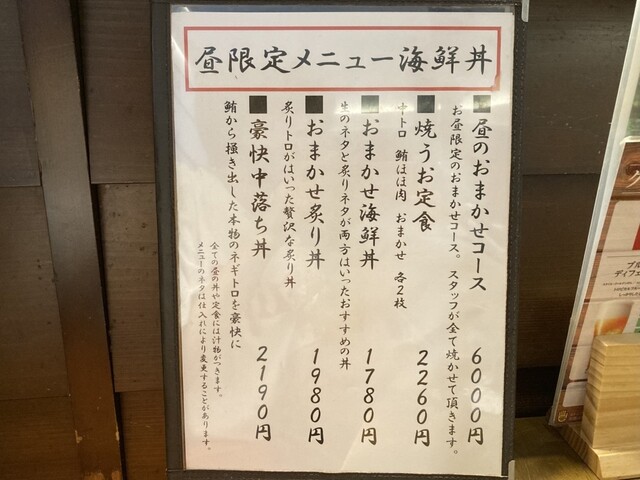 昼限定メニュー海鮮丼
■昼のおまかせコース 6000円
お昼限定のおまかせコース。スタッフが全て焼かせて頂きます。
■焼うお定食 2260円
中トロ 鮪ほほ肉 おまかせ 各2枚
■おまかせ海鮮丼 1780円
生のネタと炙りネタが両方はいったおすすめの丼
■おまかせ炙り丼 1980円
炙りトロがはいった贅沢な炙り丼
■豪快中落ち丼 2190円
鮪から掻き出した本物のネギトロを豪快に
全ての昼の丼や定食には汁物がつきます。
メニューのネタは仕入れにより変更することがあります。